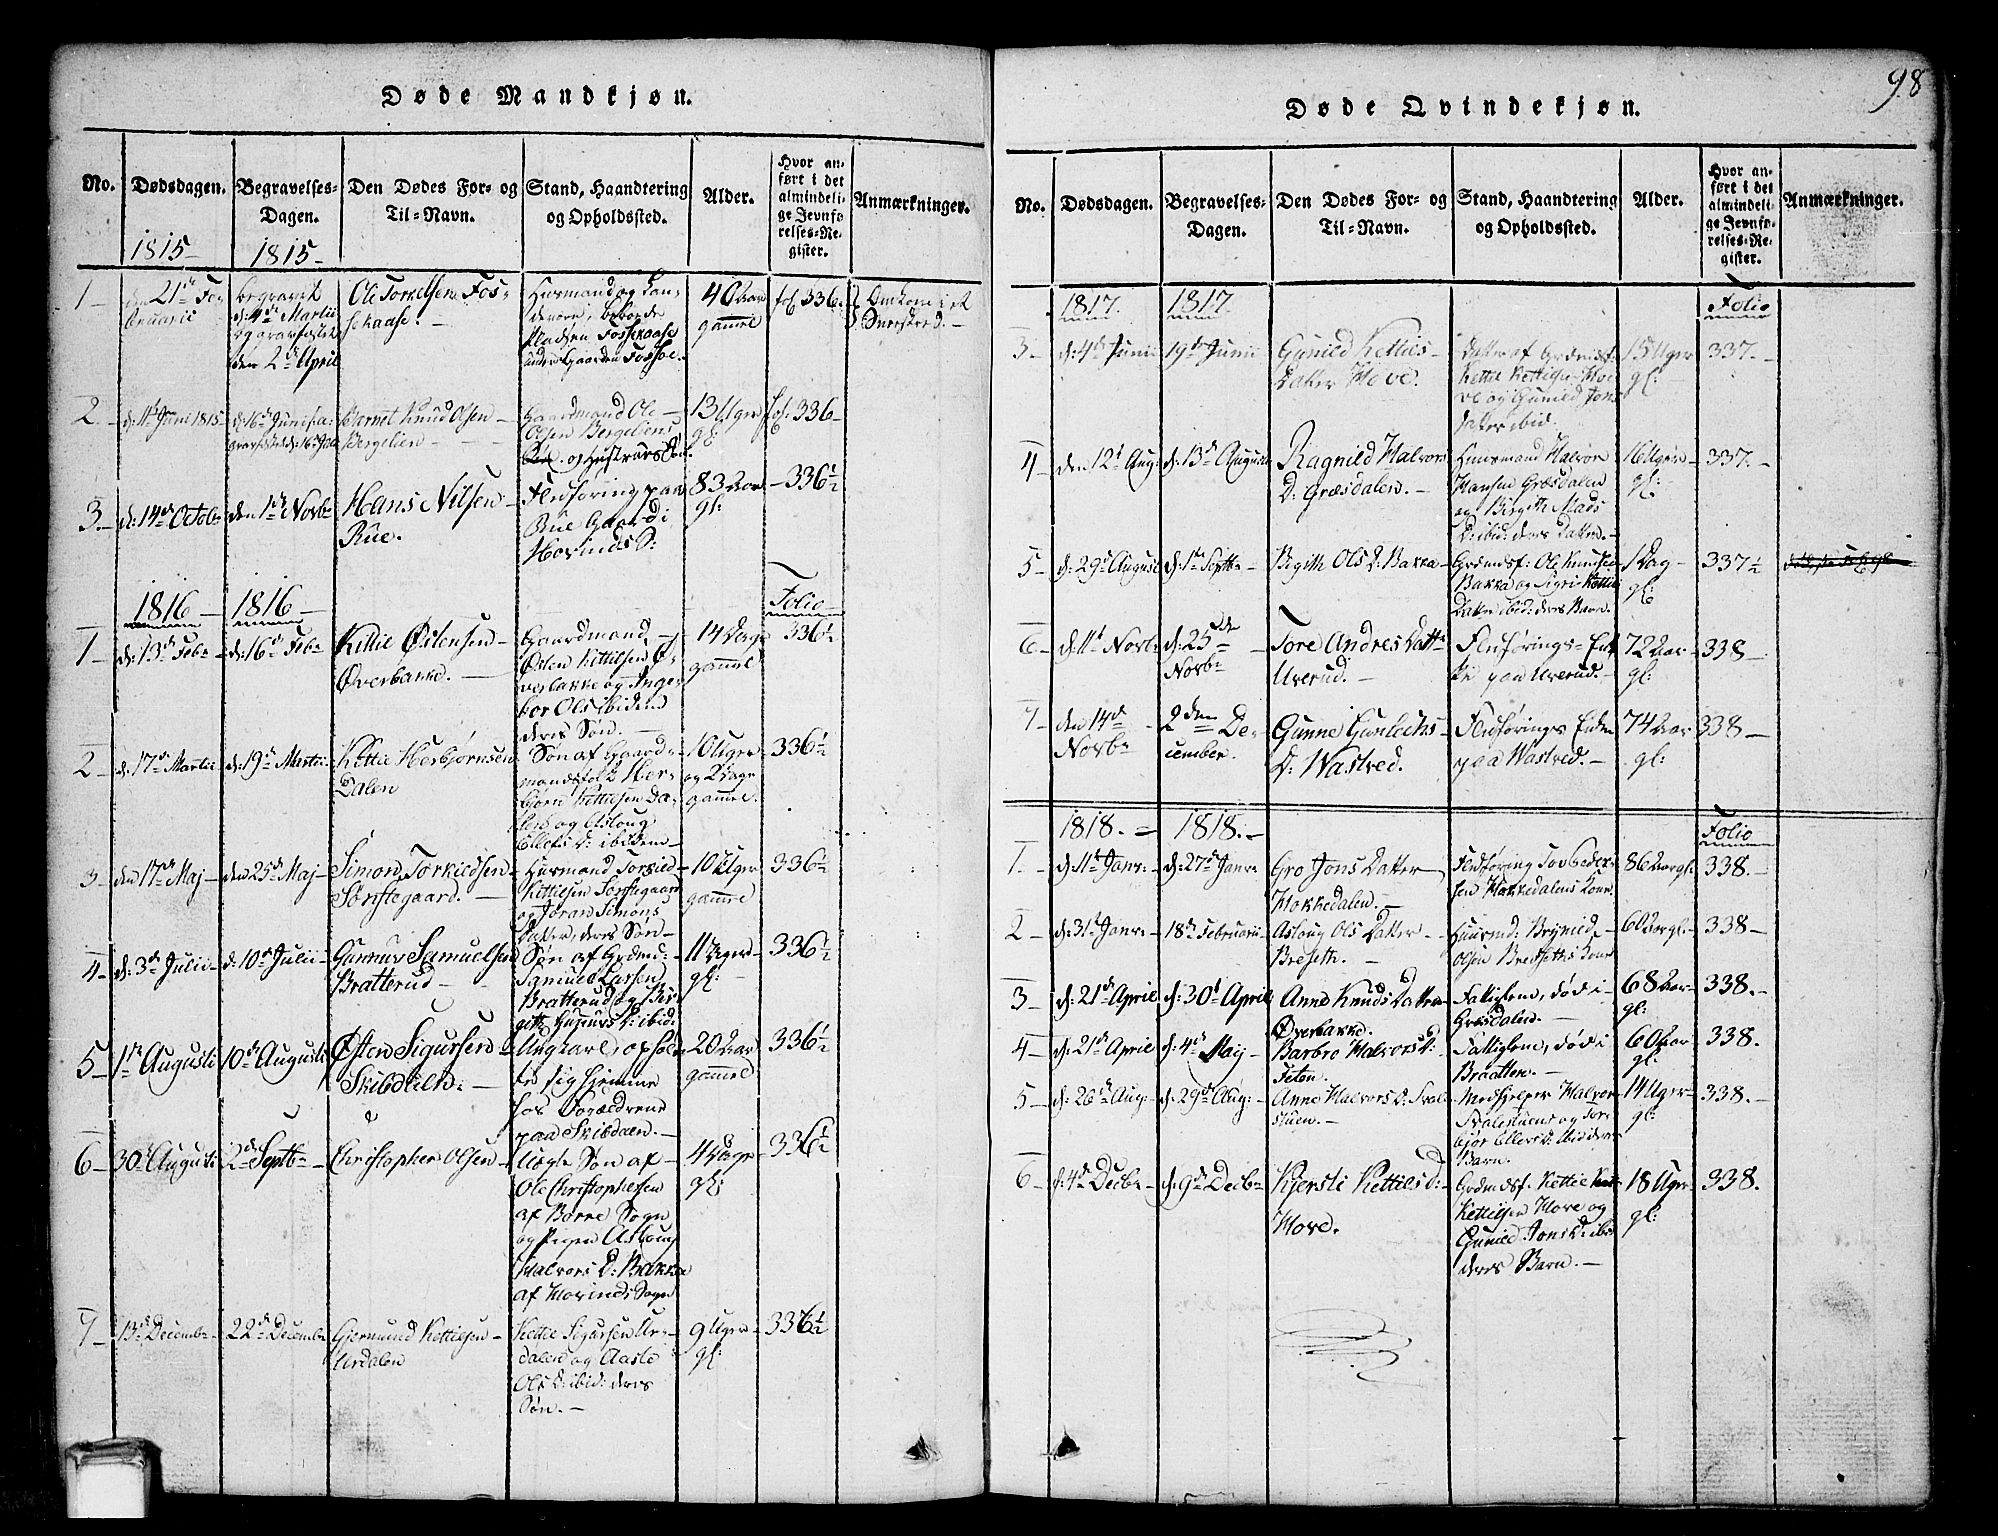 98
Døde Mandkjøn.
No. Dødsdagen. Begravelses-Dagen. Den Dødes For- og Til-Navn. Stand, Haandtering og Opholdssted. Alder. Hvor anført i det almindelige Jevnførelses-Register. Anmærkninger.
1815 1815
1 21de Februarii
begravet
d: 4de Martii
den 2de April
Ole Torkelsen Fos-
sekaase.
Huusmand og
Pladsen Fossekaase
under Gaarden Fossoe.
40 Aar
gammel
fol 336.
Omkom i et
Sneeskred.
2 d: 11te Juni 1815 d: 16de Juni
Barnet Knud Olsen
Bergelien
Gaardmand Ole
Olsen Bergeliens
og Hustrues Søn.
13 Uger
gl:
fol. 336
3 d: 14de Octobr den 1ste Novbr
Hans Nilsen
Rue.
Flødføring paa
Rue Gaard i
Hovinds S:
83 Aar
gl:
336½
1816 1816 Folio
1 d: 13de Febr d: 16de Febr
Kittil Østensen
Øverbakke.
Gaardmand
Østen Kittilsen Ø-
verbakke og Inge-
bor Ols ibidem
deres Søn.
14 Dage
gammel
336½
2 d: 17de Martii d: 19de Martii
Kettil Herbjørnsen
Dalen
Søn af Gaard-
mandsfolk Her-
bjørn Kittilsen Da-
len og Asloug
Ellefs D: ibidem
16 Uger
og 2 Dage
gammel.
336½
3 den 17de Maj den 25de Maj
Simon Torkildsen
Sønstegaard.
Huusmand Torkild
Kettilsen Sønstegaard
og Jøran Simons
Datter, deres Søn
10 Uger
gammel
336½
4 d: 3de Julii d: 10de Julii
Gunnur Samuelsen
Bratterud
Søn af Grdmd:
Samuel Larsen
Bratterud og Bir-
gitte Gunnurs D: ibid:
11 Uger
gl:
336½
5 1ste Augusti 10de Augusti
Østen Sigursen
Skibdalen.
Ungkarl, ophold-
te sig hjemme
hos Forældrene
paa Skibdalen.
20 Aar
gammel
336½
6 30te Augusti 2de Septbr
Christopher Olsen
Uægte Søn af
Ole Christophersen
af Borre Sogn
og Pigen Asloug
Halvors D: Bakka
af Hovinds Sogn
4 Dage
gl:
336½
7 13de Decembr 22de Decembr
Gjermund Kettilsen
Urdalen
Kettil Sigursen Ur-
dalen og Aaste
Ols D: ibid: deres
Søn.
9 Uger
gl:
336½
Døde Qvindekjøn.
No. Dødsdagen. Begravelses-Dagen. Den Dødes For- og Til-Navn. Stand, Haandtering og Opholdssted. Alder. Hvor anført i det almindelige Jevnførelses-Register. Anmærkninger.
1817. 1817. Folio
3 d: 4de Junii 19de Junii
Gunild Kettils-
Datter Hove.
Datter af Grdmdsf:
Kettil Kettilsen Ho-
ve og Gunild Jons
Datter ibid.
15 Uger
gl:
337.
4 den 12te Aug: d: 13de Augusti
Ragnild Halvors
D: Græsdalen.
Huusmand Halvor
Hansen Græsdalen
og Birgith Mads
D: ibid: deres Datter.
16 Uger
gl:
337.
5 d: 29de August d: 1ste Septbr
Bigith Ols D: Bakka
Grdmdsf: Ole Knudsen
Bakka og Sigri Kettils
Datter ibid: deres Barn.
1 Dag
gl:
337½
6 d: 11te Novbr d: 25de
Novbr
Tore Andres Datter
Uverud.
Flødførings-En-
ke paa Uverud.
72 Aar
gl:
338
7 den 14de
Novbr
2den De-
cember.
Gunne Gunlechs
D: Wastved.
Flødførings Enke
paa Wastved.
74 Aar
gl:
338
1818. 1818. Folio
1. d: 11te Janr: d: 27de Janr:
Gro Jons Datter
Hokkedalen.
Flødføring
Hokkedalens Kone
86 Aar gl:
338.
2 d: 31te Janr: 18de Februarii
Asloug Ols Datter
Breseth.
Huusmd: Brynild
Olsen Bredseths Kone
60 Aar gl:
338
3 d: 21de April d: 30te April
Anne Knuds Datter
Øverbakke.
Fattiglem, død i
Græsdalen.
68 Aar
gl:
338.
4 d: 21de April d: 4de Maj
Barbro Halvors D:
Teten.
Fattiglem, død i
Braatten.
60 Aar
gl:
338.
5 d: 26de Aug: d: 29de Aug:
Anne Halvors D:
stuen.
Medhjelper Halvor
14 Uger
gl:
338.
Barn.
6 d: 4de Decbr d: 9de Decbr
Kjersti Kettils D:
Hove.
Grdmdsf. Kettil
Kettilsen Hove og
Gunild Jons D: ibid
deres Barn.
18 Uger
gl:
338.